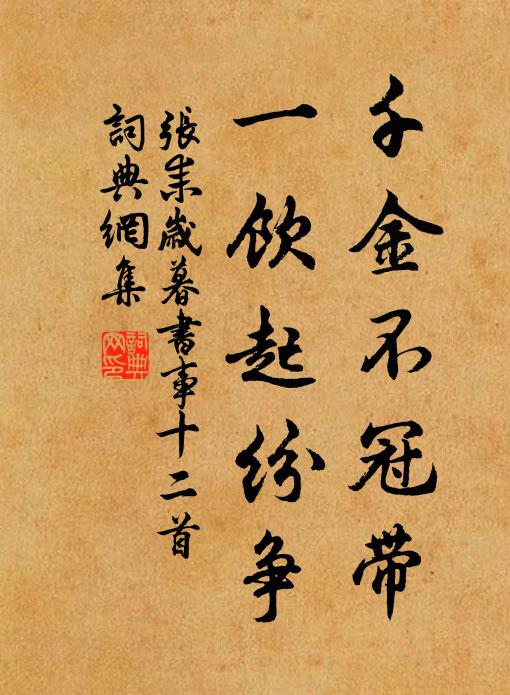 千金不冠带
一飲起紛争
張耒歲暮書事十二首
詞典網集
詞典
网印